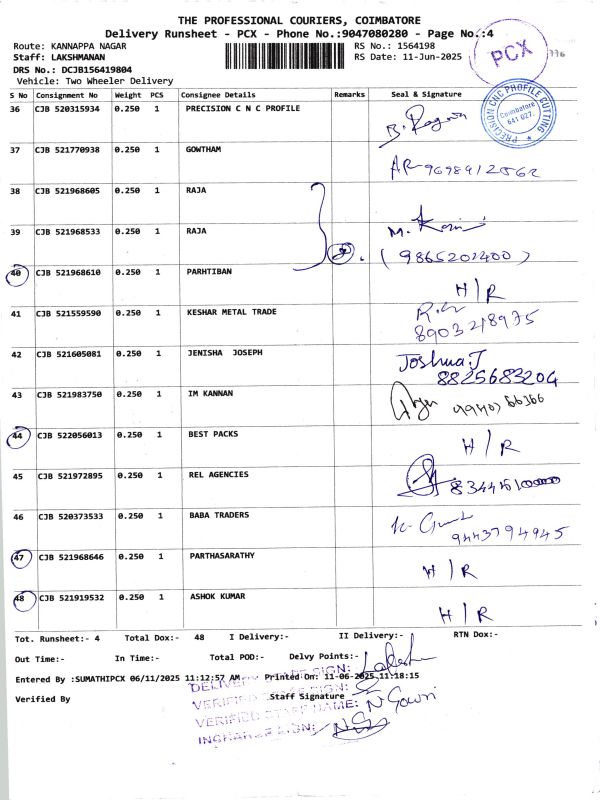 THE PROFESSIONAL COURIERS, COIMBATORE
Delivery Runsheet - PCX - Phone No.:9047080280 - Page No.:4
Route: KANNAPPA NAGAR RS No.: 1564198
Staff: LAKSHMANAN RS Date: 11-Jun-2025
DRS No.: DCJB156419804
Vehicle: Two Wheeler Delivery
PCX
S No Consignment No Weight PCS Consignee Details Remarks Seal & Signature
36 CJB 520315934 0.250 1 PRECISION C N C PROFILE
PRECISION CNC PROFILE CUTTING
Coimbatore
641 027.
37 CJB 521770938 0.250 1 GOWTHAM
38 CJB 521968605 0.250 1 RAJA
39 CJB 521968533 0.250 1 RAJA
(9865202400)
40 CJB 521968610 0.250 1 PARHTIBAN H/R
41 CJB 521559590 0.250 1 KESHAR METAL TRADE
8903218975
42 CJB 521605081 0.250 1 JENISHA JOSEPH Joshua.J
8825683204
43 CJB 521983750 0.250 1 IM KANNAN
44 CJB 522056013 0.250 1 BEST PACKS H/R
45 CJB 521972895 0.250 1 REL AGENCIES
46 CJB 520373533 0.250 1 BABA TRADERS
9443794945
47 CJB 521968646 0.250 1 PARTHASARATHY H/R
48 CJB 521919532 0.250 1 ASHOK KUMAR H/R
Tot. Runsheet:- 4 Total Dox:- 48 I Delivery:- II Delivery:- RTN Dox:-
Out Time:- In Time:- Total POD:- Delvy Points:-
Entered By :SUMATHIPCX 06/11/2025 11:12:57 AM Printed On: 11-06-2025 11:18:15
Verified By Staff Signature
DELIVERY SIGN:
VERIFIED SIGN:
VERIFIED NAME: N Gowri
INCHARGE SIGN: